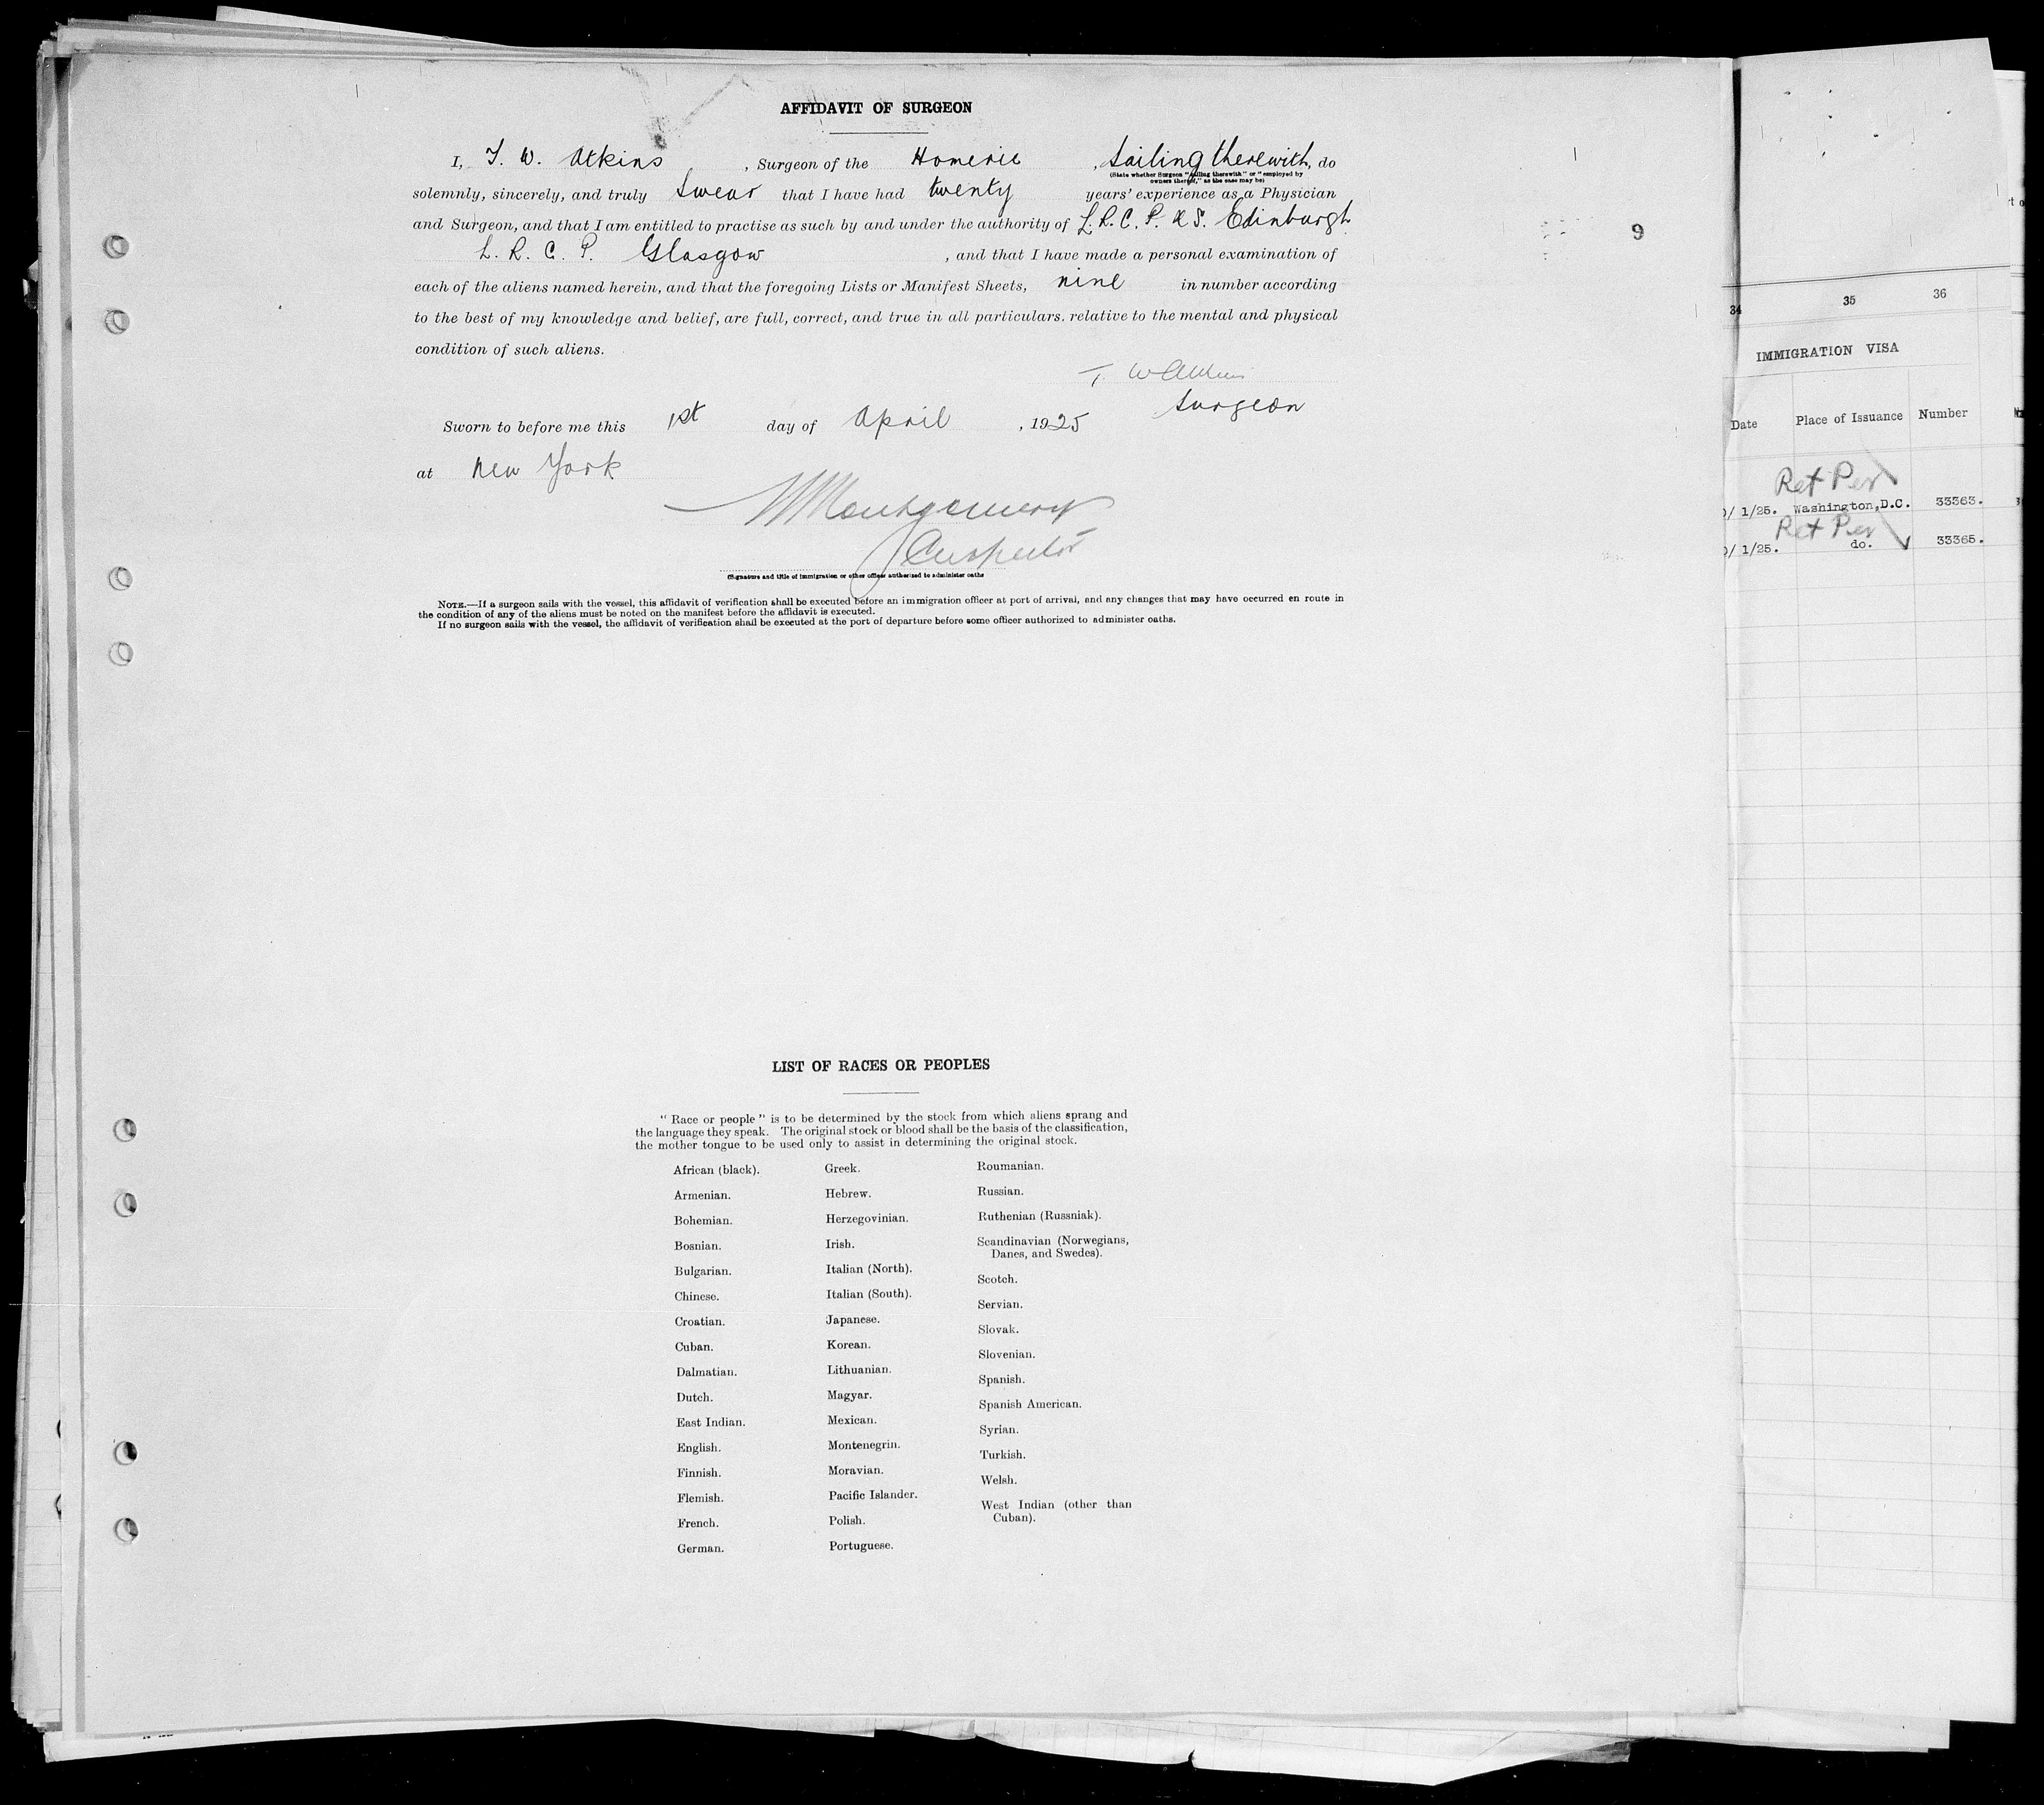 AFFIDAVIT OF SURGEON
I, T. W. Atkins, Surgeon of the Homeric, sailing therewith, do
(State whether Surgeon "sailing therewith" or "employed by
owners thereof," as the case may be)
solemnly, sincerely, and truly swear that I have had twenty years' experience as a Physician
and Surgeon, and that I am entitled to practise as such by and under the authority of L.R.C.P. & S. Edinburgh
L. R. C. P. Glasgow, and that I have made a personal examination of
each of the aliens named herein, and that the foregoing Lists or Manifest Sheets, nine in number according
to the best of my knowledge and belief, are full, correct, and true in all particulars. relative to the mental and physical
condition of such aliens.
T W Atkins
Surgeon
Sworn to before me this 1st day of April, 1925
at New York
Montgomery
Inspector
(Signature and title of immigration or other officer authorized to administer oaths
NOTE.—If a surgeon sails with the vessel, this affidavit of verification shall be executed before an immigration officer at port of arrival, and any changes that may have occurred en route in
the condition of any of the aliens must be noted on the manifest before the affidavit is executed.
If no surgeon sails with the vessel, the affidavit of verification shall be executed at the port of departure before some officer authorized to administer oaths.
9
LIST OF RACES OR PEOPLES
"Race or people" is to be determined by the stock from which aliens sprang and
the language they speak. The original stock or blood shall be the basis of the classification,
the mother tongue to be used only to assist in determining the original stock.
African (black).
Armenian.
Bohemian.
Bosnian.
Bulgarian.
Chinese.
Croatian.
Cuban.
Dalmatian.
Dutch.
East Indian.
English.
Finnish.
Flemish.
French.
German.
Greek.
Hebrew.
Herzegovinian.
Irish.
Italian (North).
Italian (South).
Japanese.
Korean.
Lithuanian.
Magyar.
Mexican.
Montenegrin.
Moravian.
Pacific Islander.
Polish.
Portuguese.
Roumanian.
Russian.
Ruthenian (Russniak).
Scandinavian (Norwegians,
Danes, and Swedes).
Scotch.
Servian.
Slovak.
Slovenian.
Spanish.
Spanish American.
Syrian.
Turkish.
Welsh.
West Indian (other than
Cuban).
34 35 36
IMMIGRATION VISA
Date Place of Issuance Number
Ret Per
1/25. Washington,D.C. 33363.
Ret Per
1/25. do. 33365.